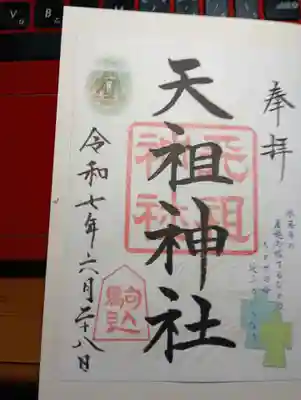 奉拝
天祖神社
天祖
神社
令和七年六月二十八日
駒込